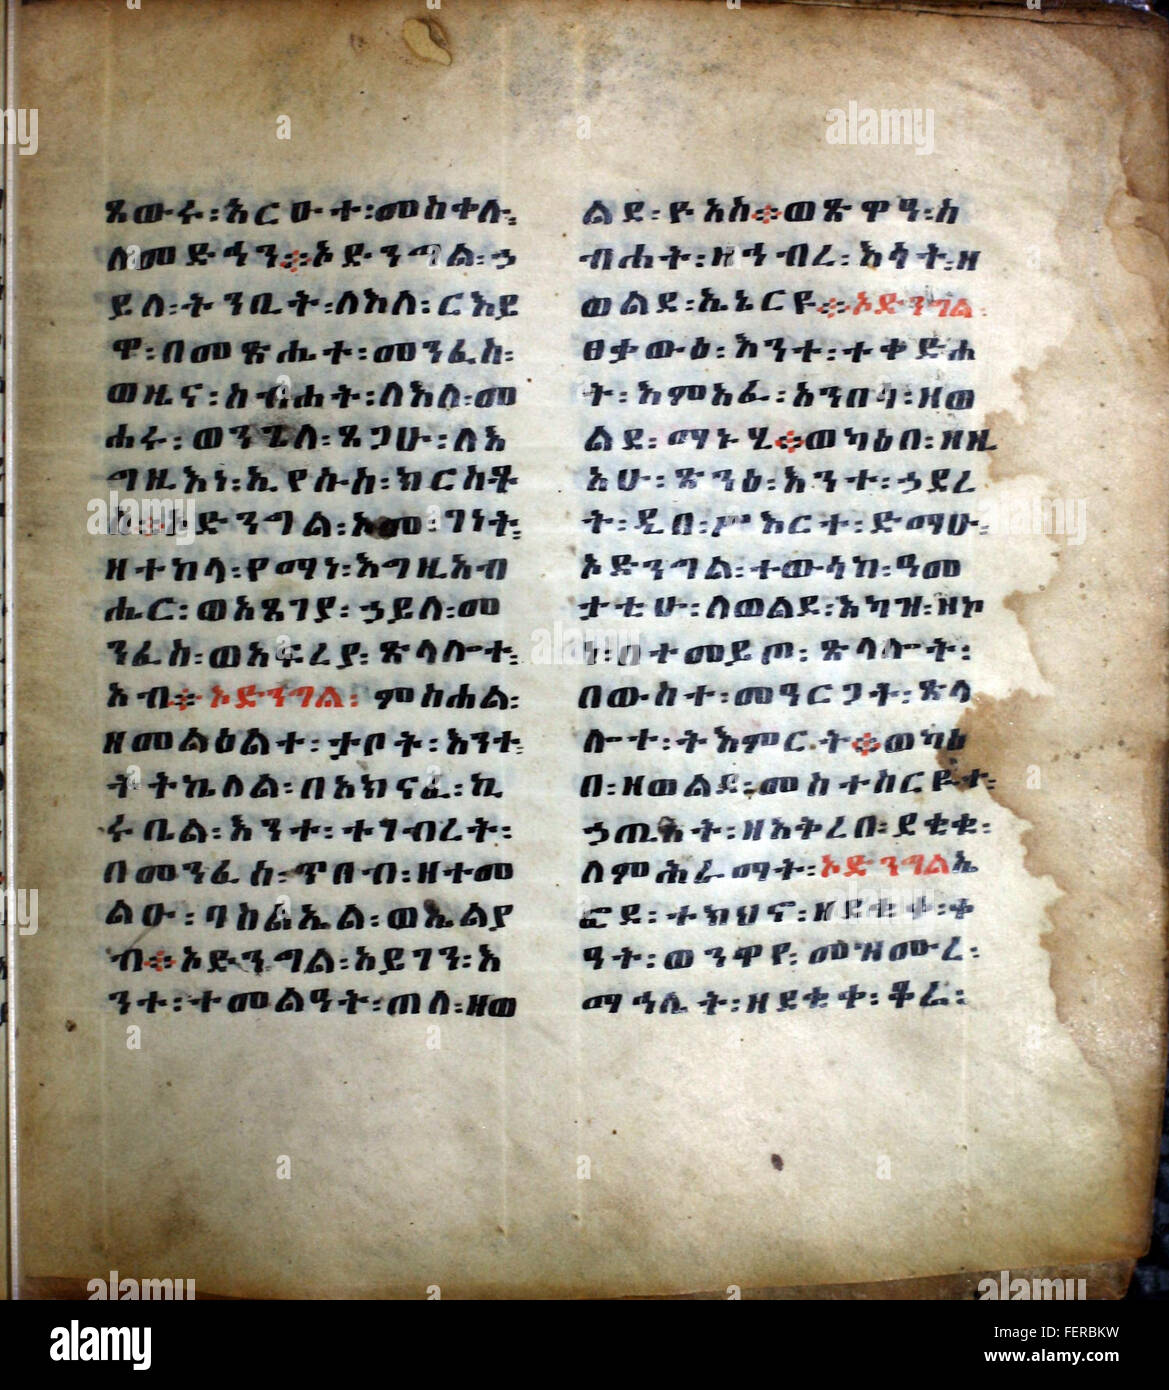 ጼውሩ፡አርዑተ፡መስቀሉ፡
ለመድኃን፡፡ኦድንግል፡ኃ
ይለ፡ትንቢት፡ለእለ፡ርእይ
ዋ፡በመጽሔተ፡መንፈስ፡
ወዜና፡ስብሐት፡ለእለ፡መ
ሐሩ፡ወንጌለ፡
ግዚእነ፡ኢየሱስ፡ክርስቶ
ስ፡፡ኦድንግል፡አመ፡ገነት፡
ዘተከላ፡የማነ፡እግዚአብ
ሔር፡ወአጼገያ፡ኃይለ፡መ
ንፈስ፡ወአፍረያ፡ጽላሎተ፡
አብ፡፡ኦድንግል፡ምስሐል፡
ዘመልዕልተ፡ታቦት፡እንተ፡
ትትኬለል፡በአክናፈ፡ኪ
ሩቤል፡እንተ፡ተገብረት፡
በመንፈስ፡ጥበብ፡ዘተመ
ልዑ፡ባስልኤል፡ወኤልያ
ብ፡፡ኦድንግል፡አይገን፡እ
ንተ፡ተመልዓት፡ጠለ፡ዘወ
ልደ፡ዮአስ፡፡ወጽዋዓ፡ስ
ብሐት፡ዘኃብረ፡እሳት፡ዘ
ወልደ፡ኤኔርዩ፡፡ኦድንግል፡
ፀቃውዕ፡እንተ፡ተቀድሐ
ት፡እምአፈ፡አንበሳ፡ዘወ
ልደ፡ማኑሂ፡፡ወካዕበ፡ዘዚ
አሁ፡ጽንዕ፡እንተ፡ኃደረ
ት፡ዲበ፡ሥእርተ፡ድማሁ፡
ኦድንግል፡ተውሳከ፡ዓመ
ታቲሁ፡ለወልደ፡አካዝ፡ዘኮ
ነ፡በተመይጦ፡ጽላሎት፡
በውስተ፡መዓርጋት፡ጽላ
ሎተ፡ትእምርት፡፡ወካዕ
በ፡ዘወልደ፡መስተስርዩተ፡
ኃጢአት፡ዘአቅረበ፡ደቂቂ፡
ለምሕራማት፡ኦድንግልኤ
ፎደ፡ተክህኖ፡ዘደቂቀ፡ቆ
ዓት፡ወንዋየ፡መዝሙረ፡
ማኅሌት፡ዘደቂቀ፡ቆሬ፡